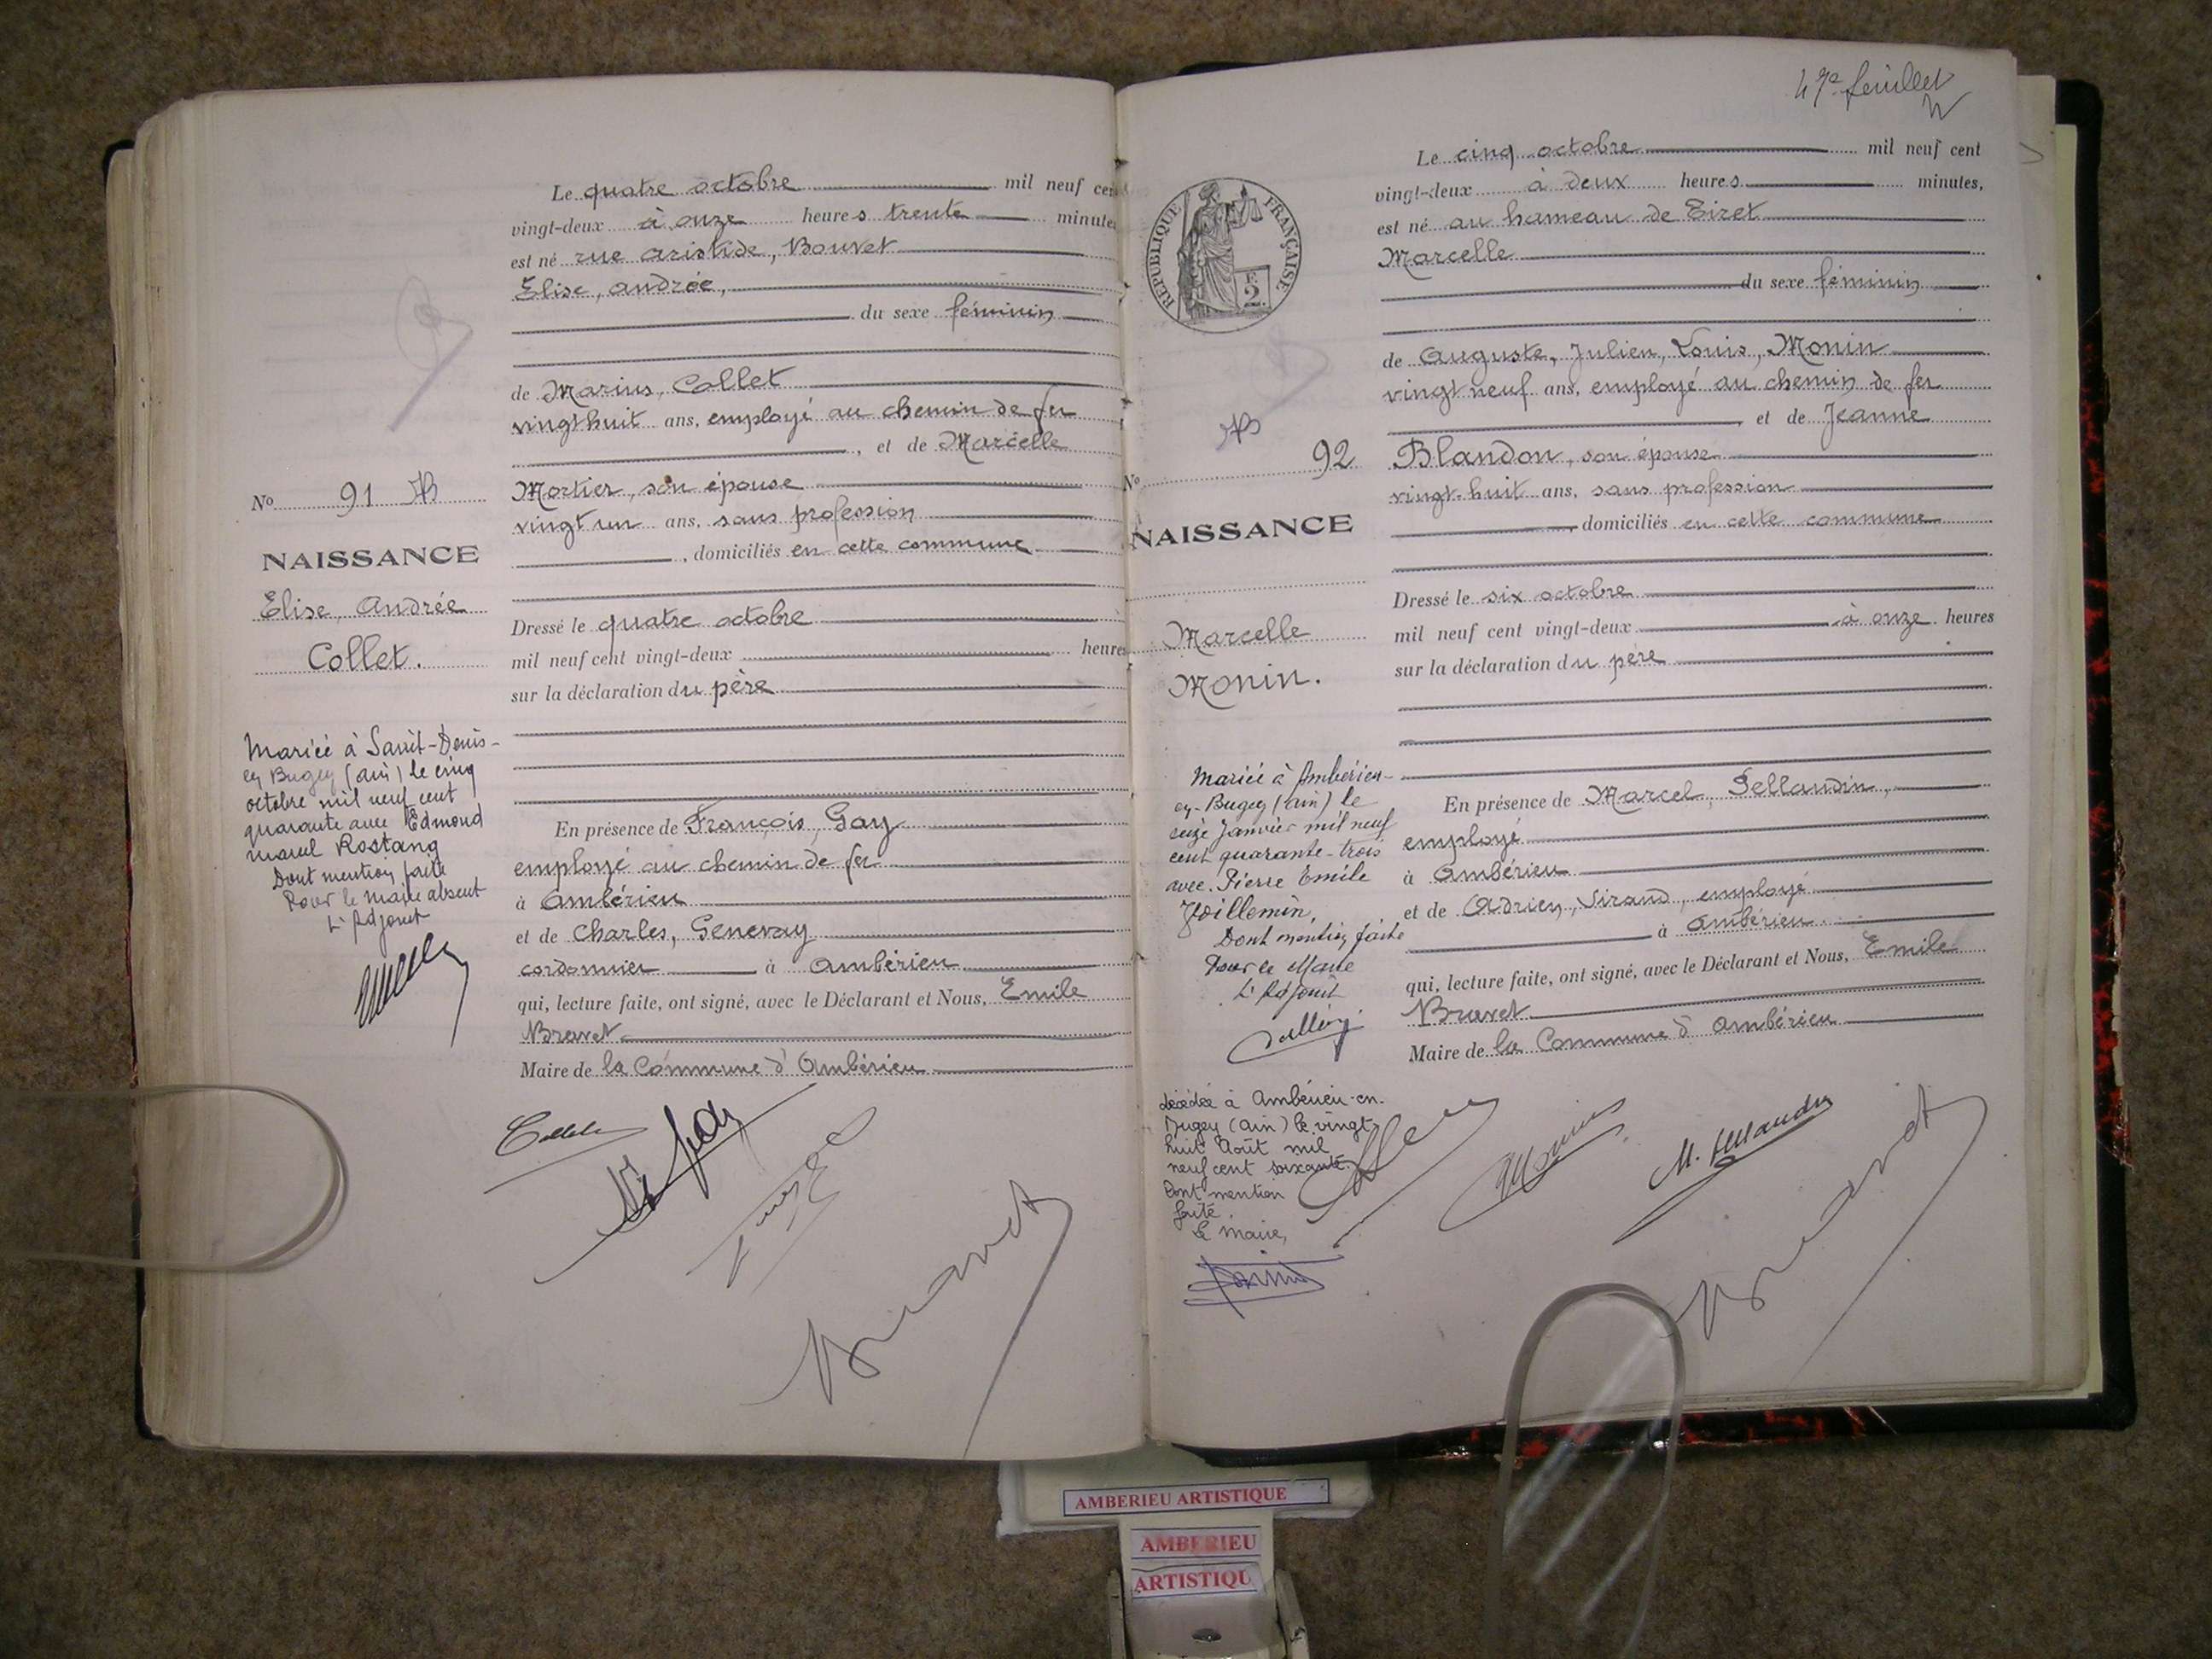 Le quatre octobre mil neuf ce
vingt-deux à onze heures trente minute
est né rue aristide, Bouvet
Elise, andrée,
du sexe féminin
de Marius, Collet
vingt huit ans, employé au chemin de fer
, et de Marcelle
Mortier, son épouse
vingt un ans, sans profession
, domiciliés en cette commune
Dressé le quatre octobre
mil neuf cent vingt-deux heures
sur la déclaration du père
En présence de François, Gay
employé au chemin de fer
à Ambérieu
et de Charles, Genevay
cordonnier à Ambérieu
qui, lecture faite, ont signé, avec le Déclarant et Nous, Emile
Bravet
Maire de la Commune d'Ambérieu
No 91
NAISSANCE
Elise, Andrée
Collet.
Mariée à Saint-Denis-
en Bugey (ain) le cinq
octobre mil neuf cent
quarante avec Edmond
marcel Rostang
Dont mention faite
Pour le Maire absent
L'Adjoint
Collet
Bravet
47e feuillet
REPUBLIQUE FRANÇAISE
F.
2
Le cinq octobre mil neuf cent
vingt-deux à deux heures minutes,
est né au hameau de Tiret
Marcelle
du sexe féminin
de Auguste, Julien, Louis, Monin
vingt neuf ans, employé au chemin de fer
, et de Jeanne
Blandon, son épouse
vingt-huit ans, sans profession
, domiciliés en cette commune
Dressé le six octobre
mil neuf cent vingt-deux à onze heures
sur la déclaration du père
En présence de Marcel, Pellaudin,
employé
à Ambérieu
et de Adrien, Sirand, employé
à Ambérieu
qui, lecture faite, ont signé, avec le Déclarant et Nous, Emile
Bravet
Maire de la Commune d'Ambérieu
No 92
NAISSANCE
Marcelle
Monin.
Mariée à Ambérieu-
en-Bugey (ain) le
seize Janvier mil neuf
cent quarante-trois
avec Pierre Emile
Dont mention faite
Pour le Maire
L'Adjoint
décédée à Ambérieu-en-
Bugey (ain) le vingt
huit Août mil
neuf cent soixante.
Dont mention
faite
Le Maire,
Bravet
AMBERIEU ARTISTIQUE
AMBERIEU
ARTISTIQU